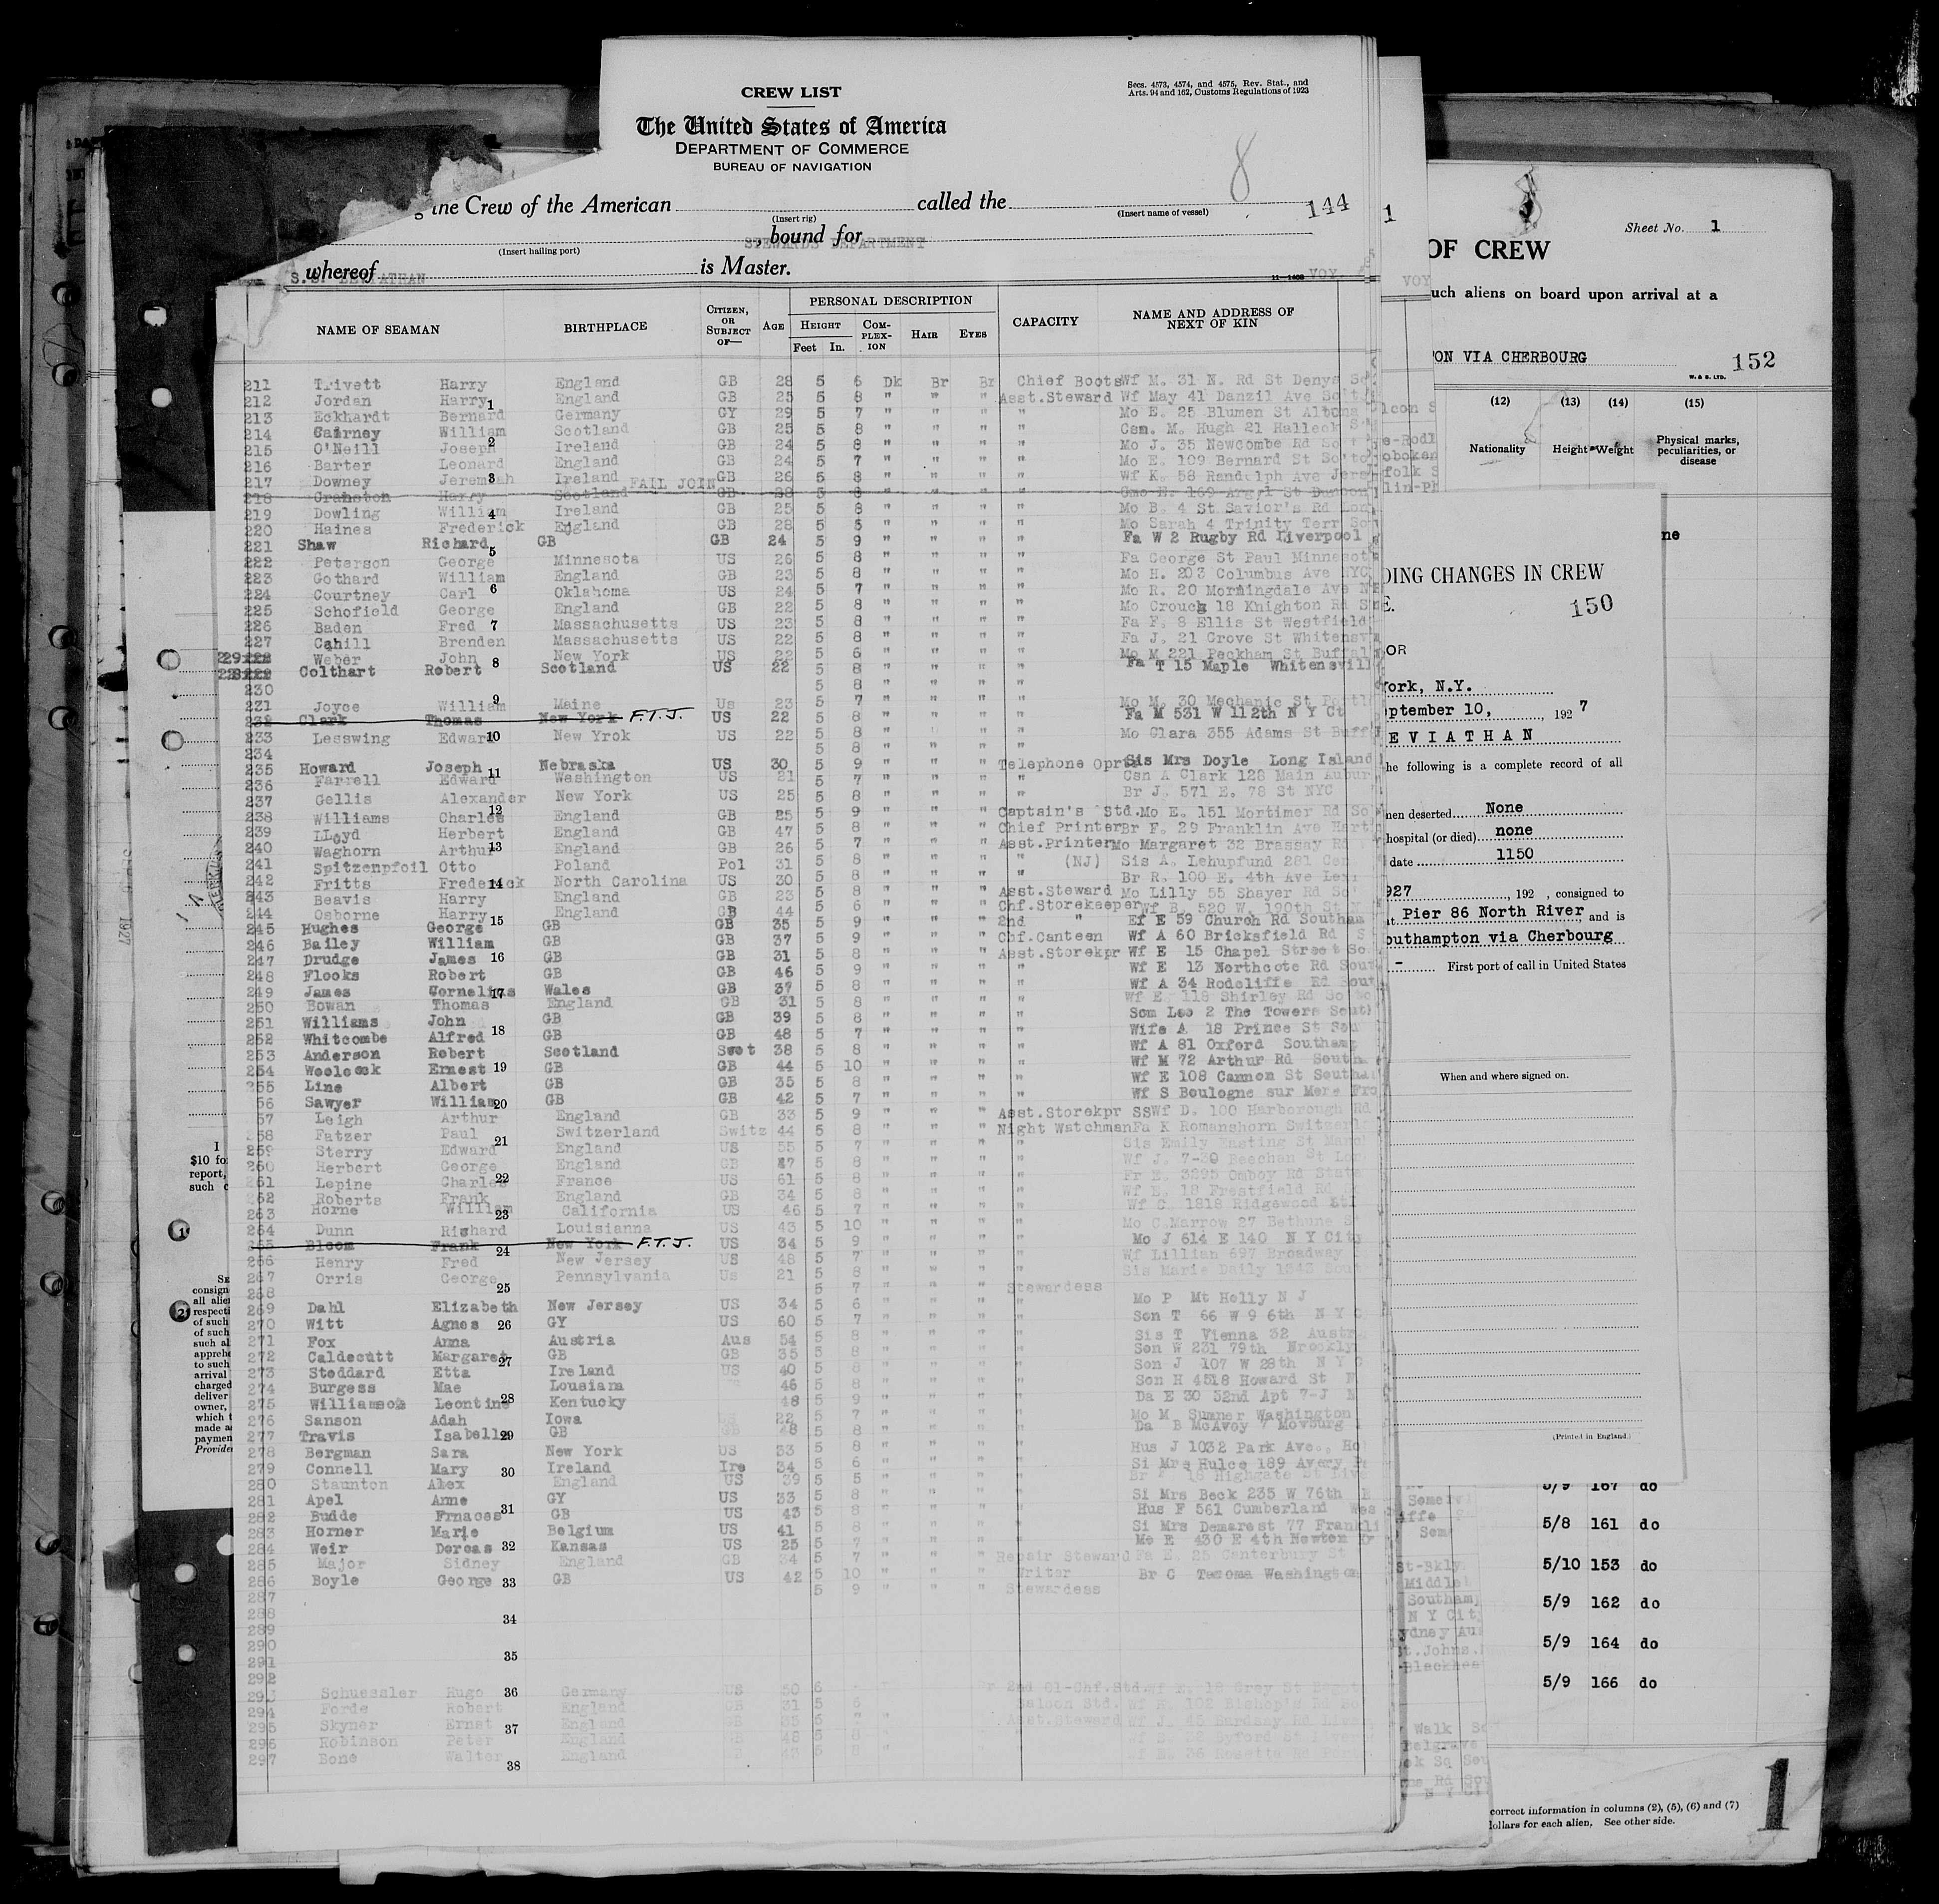 CREW LIST
Secs. 4573, 4574, and 4575, Rev. Stat., and
Arts. 94 and 162, Customs Regulations of 1923
The United States of America
DEPARTMENT OF COMMERCE
BUREAU OF NAVIGATION
8
the Crew of the American called the 144
(Insert rig) (Insert name of vessel)
, bound for
STEWARDS DEPARTMENT
(Insert hailing port)
whereof is Master.
S.S. LEVIATHAN 11—1408 VOY.
NAME OF SEAMAN BIRTHPLACE CITIZEN, OR SUBJECT OF— AGE PERSONAL DESCRIPTION CAPACITY NAME AND ADDRESS OF NEXT OF KIN
HEIGHT COMPLEXION HAIR EYES
Feet In.
211 Trivett Harry England GB 28 5 6 Dk Br Br Chief Boots Wf M. 31 N. Rd St Denys
212 Jordan Harry England GB 25 5 8 " " " Asst.Steward Wf May 41 Danzil Ave
213 Eckhardt Bernard Germany GY 29 5 7 " " " " Mo E. 25 Blumen St Altona
214 Cairney William Scotland GB 25 5 8 " " " " Csn. M. Hugh 21 Halleck
215 O'Neill Joseph Ireland GB 24 5 8 " " " " Mo J. 35 Newcombe Rd
216 Barter Leonard England GB 24 5 7 " " " " Mo E. 109 Bernard St So'to
217 Downey Jeremiah Ireland GB 26 5 8 " " " " Wf K. 58 Randolph Ave Jers
FAIL JOIN
218 Cranston Harry Scotland GB 28 5 8 " " " " Gmo E. 169 Argyl St Dunoon
219 Dowling William Ireland GB 25 5 8 " " " " Mo B. 4 St Savior's Rd Lon
220 Haines Frederick England GB 28 5 5 " " " " Mo Sarah 4 Trinity Terr So
221 Shaw Richard GB GB 24 5 9 " " " " Fa W 2 Rugby Rd Liverpool
222 Peterson George Minnesota US 26 5 8 " " " " Fa George St Paul Minnesot
223 Gothard William England GB 23 5 8 " " " " Mo H. 203 Columbus Ave NYC
224 Courtney Carl Oklahoma US 24 5 7 " " " " Mo R. 20 Morningdale Ave
225 Schofield George England GB 22 5 8 " " " " Mo Crouch 18 Knighton Rd
226 Baden Fred Massachusetts US 23 5 8 " " " " Fa F. 8 Ellis St Westfield
227 Cahill Brenden Massachusetts US 22 5 8 " " " " Fa J. 21 Grove St Whitensv
Weber John New York US 22 5 6 " " " " Mo M 221 Peckham St Buffal
Colthart Robert Scotland US 22 5 8 " " " " Fa T 15 Maple Whitensvill
230 5 8 " " " "
231 Joyce William Maine Us 23 5 7 " " " " Mo M. 30 Mechanic St
232 Clark Thomas New York F.T.J. US 22 5 8 " " " " Fa M 531 W 112th N Y Ct
233 Lesswing Edward New Yrok US 22 5 8 " " " " Mo Clara 355 Adams St Buff
234 5 8 " " " "
235 Howard Joseph Nebraska US 30 5 9 " " " Telephone Oprt Sis Mrs Doyle Long Island
236 Farrell Edward Washington US 21 5 7 " " " " Csn A Clark 128 Main Aubur
237 Gellis Alexander New York US 25 5 8 " " " " Br J. 571 E. 78 St NYC
238 Williams Charles England GB 25 5 9 " " " Captain's Std. Mo E. 151 Mortimer Rd So
239 LLoyd Herbert England GB 47 5 8 " " " Chief Printer Br F. 29 Franklin Ave
240 Waghorn Arthur England GB 26 5 7 " " " Asst.Printer Mo Margaret 32 Brassay Rd
241 Spitzenpfoil Otto Poland Pol 31 5 8 " " " " (NJ) Sis A. Lehupfund 281
242 Fritts Frederick North Carolina US 30 5 8 " " " " Br R. 100 E. 4th Ave
243 Beavis Harry England GB 23 5 8 " " " Asst.Steward Mo Lilly 55 Shayer Rd So
244 Osborne Harry England GB 44 5 6 " " " Chf.Storekeeper Wf B. 520 W. 190th St
245 Hughes George GB GB 35 5 9 " " " 2nd " Ef E 59 Church Rd Southam
246 Bailey William GB GB 37 5 9 " " " Chf.Canteen Wf A 60 Bricksfield Rd
247 Drudge James GB GB 31 5 8 " " " Asst.Storekpr Wf E 15 Chapel Street So.
248 Flooks Robert GB GB 46 5 9 " " " " Wf E 13 Northcote Rd Sout
249 James Cornelius Wales GB 37 5 8 " " " " Wf A 34 Radcliffe Rd Sout
250 Bowan Thomas England GB 31 5 8 " " " " Wf E. 118 Shirley Rd So
251 Williams John GB GB 39 5 8 " " " " Som Leo 2 The Towers South
252 Whitcombe Alfred GB GB 48 5 7 " " " " Wife A 18 Prince St Sou
253 Anderson Robert Scotland Scot 38 5 8 " " " " Wf A 81 Oxford Southamp
254 Woolcock Ernest GB GB 44 5 10 " " " " Wf M 72 Arthur Rd South
255 Line Albert GB GB 35 5 8 " " " " Wf E 108 Cannon St Southa
56 Sawyer William GB GB 42 5 7 " " " " Wf S Boulogne sur Mere
57 Leigh Arthur England GB 33 5 9 " " " Asst.Storekpr SS Wf D. 100 Harborough Rd
258 Fatzer Paul Switzerland Switz 44 5 8 " " " Night Watchman Fa K Romanshorn Switzerl
259 Sterry Edward England US 55 5 7 " " " " Sis Emily Hasting St
260 Herbert George England GB 47 5 8 " " " " Wf J. 7-30 Beechan St
261 Lepine Charles France US 61 5 8 " " " " Fr E. 3295 Omboy Rd
262 Roberts Frank England GB 34 5 8 " " " " Wf E. 18 Frestfield Rd
263 Horne William California US 46 5 7 " " " " Wf C. 1818 Ridgewood
264 Dunn Richard Louisianna US 43 5 10 " " " " Mo C.Marrow 27 Bethune S
265 Bloom Frank New York F.T.J. US 34 5 9 " " " " Mo J 614 E 140 N Y City
266 Henry Fred New Jersey US 48 5 7 " " " " Wf Lillian 697 Broadway
267 Orris George Pennsylvania Us 21 5 8 " " " " Sis Marie Daily 1343 Sout
268 5 7 " " " Stewardess
269 Dahl Elizabeth New Jersey US 34 5 6 " " " Mo P Mt Holly N J
270 Witt Agnes GY US 60 5 7 " " " Son T 66 W 9 6th N Y C
271 Fox Anna Austria Aus 54 5 8 " " " Sis T Vienna 32 Austr
272 Caldecutt Margaret GB GB 35 5 8 " " " Son W 231 79th Brooklyn
273 Stoddard Etta Ireland US 40 5 8 " " " Son J 107 W 28th N Y C
274 Burgess Mae Lousiam 46 5 8 " " " Son H 4518 Howard St N
275 Williamson Leontine Kentucky 48 5 9 " " " Da E 30 32nd Apt 7-J N
276 Sanson Adah Iowa 22 5 7 " " " Mo M Sumner Washington
277 Travis Isabella GB GB 48 5 8 " " " Da B McAvoy 7
278 Bergman Sara New York US 33 5 8 " " " Hus J 1032 Park Ave.,
279 Connell Mary Ireland Ire 34 5 6 " " " Si Mrs Hulce 189 Avery
280 Staunton Alex England US 39 5 5 " " " Br 18 Highgate St Live
281 Apel Anne GY US 33 5 8 " " " Si Mrs Beck 235 W 76th
282 Budde Frnaces GB US 43 5 8 " " " Hus F 561 Cumberland Wes
283 Horner Marie Belgium US 41 5 8 " " " Si Mrs Demarest 77 Frankli
284 Weir Dorcas Kansas US 25 5 7 " " " Mo E 430 E 4th Newton
285 Major Sidney England GB 34 5 7 " " " Repair Steward Fa E. 25 Canterbury St
286 Boyle George GB US 42 5 10 " " " Writer Br C Tacoma Washington
287 5 9 " " " Stewardess
288
289
290
291
292
293 Schuessler Hugo Germany US 50 2nd Cl-Chf.Std. Wf E. 18 Grey St
294 Forde Robert England GB 31 5 Saloon Std. Wf H. 102 Bishop's Rd So
295 Skyner Ernst England GB 35 5 Asst.Steward Wf J. 45 Burdeny Rd Live
296 Robinson Peter England 48 5
297 Bone Walter England
1
2
3
4
5
6
7
8
9
10
11
12
13
14
15
16
17
18
19
20
21
22
23
24
25
26
27
28
29
30
31
32
33
34
35
36
37
38
1
VOY
Sheet No. 1
OF CREW
uch aliens on board upon arrival at a
ON VIA CHERBOURG 152
W. & S. LTD.
(12) (13) (14) (15)
Nationality Height Weight Physical marks, peculiarities, or disease
ne
DING CHANGES IN CREW
E. 150
OR
York, N.Y.
eptember 10, , 192 7
EVIATHAN
he following is a complete record of all
men deserted None
hospital (or died) none
date 1150
927 , 192 , consigned to
at Pier 86 North River and is
outhampton via Cherbourg
- First port of call in United States
When and where signed on.
(Printed in England.)
5/9 167 do
5/8 161 do
5/10 153 do
5/9 162 do
5/9 164 do
5/9 166 do
correct information in columns (2), (5), (6) and (7)
dollars for each alien. See other side.
1
1927
I
$10 fo
report,
such
consign
all alie
respecti
of such
of such
such al
apprehe
to such
arrival
charged
deliver
owner,
which t
made a
paymen
Provide